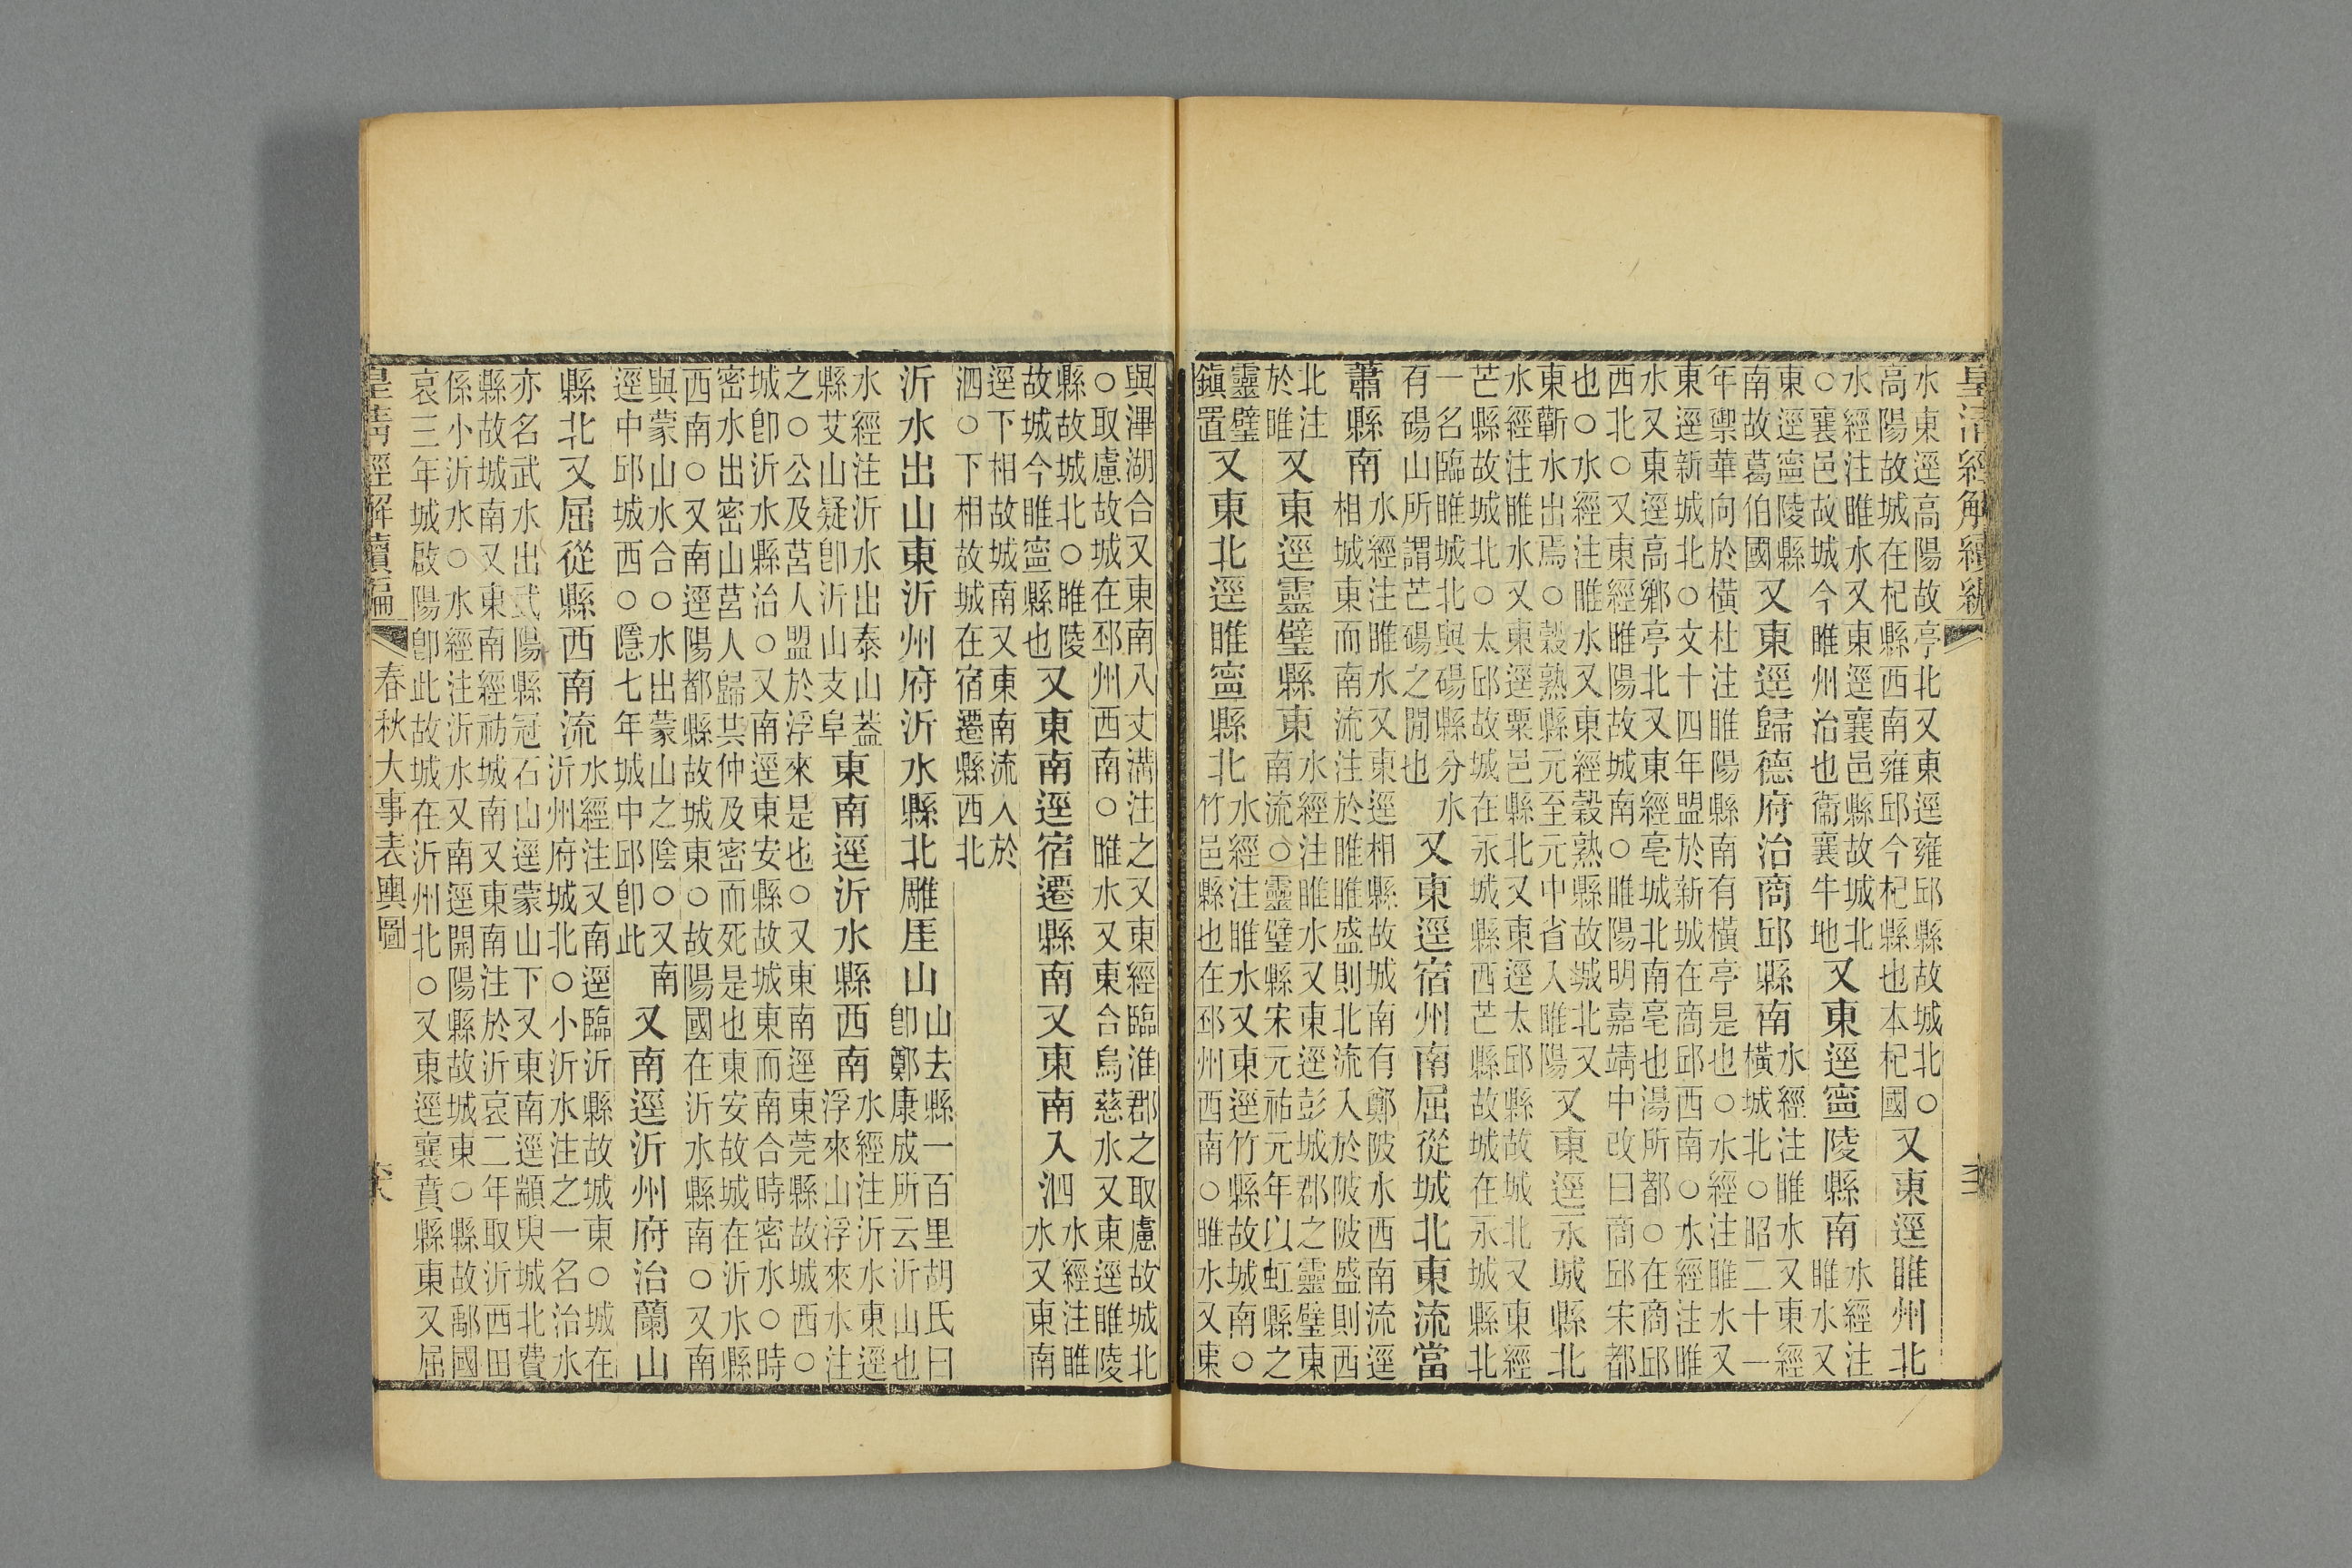 皇清經解續編
水東逕高陽故亭北又東逕雍邱縣故城北○
高陽故城在杞縣西南雍邱今杞縣也本杞國
又東逕睢州北
水經注睢水又東逕襄邑縣故城北
○襄邑故城今睢州治也衞襄牛地
又東逕寧陵縣南
水經注
睢水又
東逕寧陵縣
南故葛伯國
又東逕歸德府治商邱縣南
水經注睢水又東經
橫城北○昭二十一
年禦華向於橫杜注睢陽縣南有橫亭是也○水經注睢水又
東逕新城北○文十四年盟於新城在商邱西南○水經注睢
水又東逕高鄉亭北又東經亳城北南亳也湯所都○在商邱
西北○又東經睢陽故城南○睢陽明嘉靖中改曰商邱宋都
也○水經注睢水又東經穀熟縣故城北又
東蘄水出焉○穀熟縣元至元中省入睢陽
又東逕永城縣北
水經注睢水又東逕粟邑縣北又東逕太邱縣故城北又東經
芒縣故城北○太邱故城在永城縣西芒縣故城在永城縣北
一名臨睢城北與碭縣分水
有碭山所謂芒碭之閒也
又東逕宿州南屈從城北東流當
蕭縣南
水經注睢水又東逕相縣故城南有鄭陂水西南流逕
相城東而南流注於睢睢盛則北流入於陂陂盛則西
北注
於睢
又東逕靈璧縣東
水經注睢水又東逕彭城郡之靈璧東
南流○靈璧縣宋元祐元年以虹縣之
靈璧
鎭置
又東北逕睢寧縣北
水經注睢水又東逕竹縣故城南○
竹邑縣也在邳州西南○睢水又東
與潬湖合又東南八丈溝注之又東經臨淮郡之取慮故城北
○取慮故城在邳州西南○睢水又東合烏慈水又東逕睢陵
縣故城北○睢陵
故城今睢寧縣也
又東南逕宿遷縣南又東南入泗
水經注睢
水又東南
逕下相故城南又東南流入於
泗○下相故城在宿遷縣西北
沂水出山東沂州府沂水縣北雕厓山
山去縣一百里胡氏曰
卽鄭康成所云沂山也
水經注沂水出泰山蓋
縣艾山疑卽沂山支阜
東南逕沂水縣西南
水經注沂水東逕
浮來山浮來水注
之○公及莒人盟於浮來是也○又東南逕東莞縣故城西○
城卽沂水縣治○又南逕東安縣故城東而南合時密水○時
密水出密山莒人歸共仲及密而死是也東安故城在沂水縣
西南○又南逕陽都縣故城東○故陽國在沂水縣南○又南
與蒙山水合○水出蒙山之陰○又南
逕中邱城西○隱七年城中邱卽此
又南逕沂州府治蘭山
縣北又屈從縣西南流
水經注又南逕臨沂縣故城東○城在
沂州府城北○小沂水注之一名治水
亦名武水出武陽縣冠石山逕蒙山下又東南逕顓臾城北費
縣故城南又東南經祊城南又東南注於沂哀二年取沂西田
係小沂水○水經注沂水又南逕開陽縣故城東○縣故鄅國
哀三年城啟陽卽此故城在沂州北○又東逕襄賁縣東又屈
皇清經解續編
春秋大事表輿圖